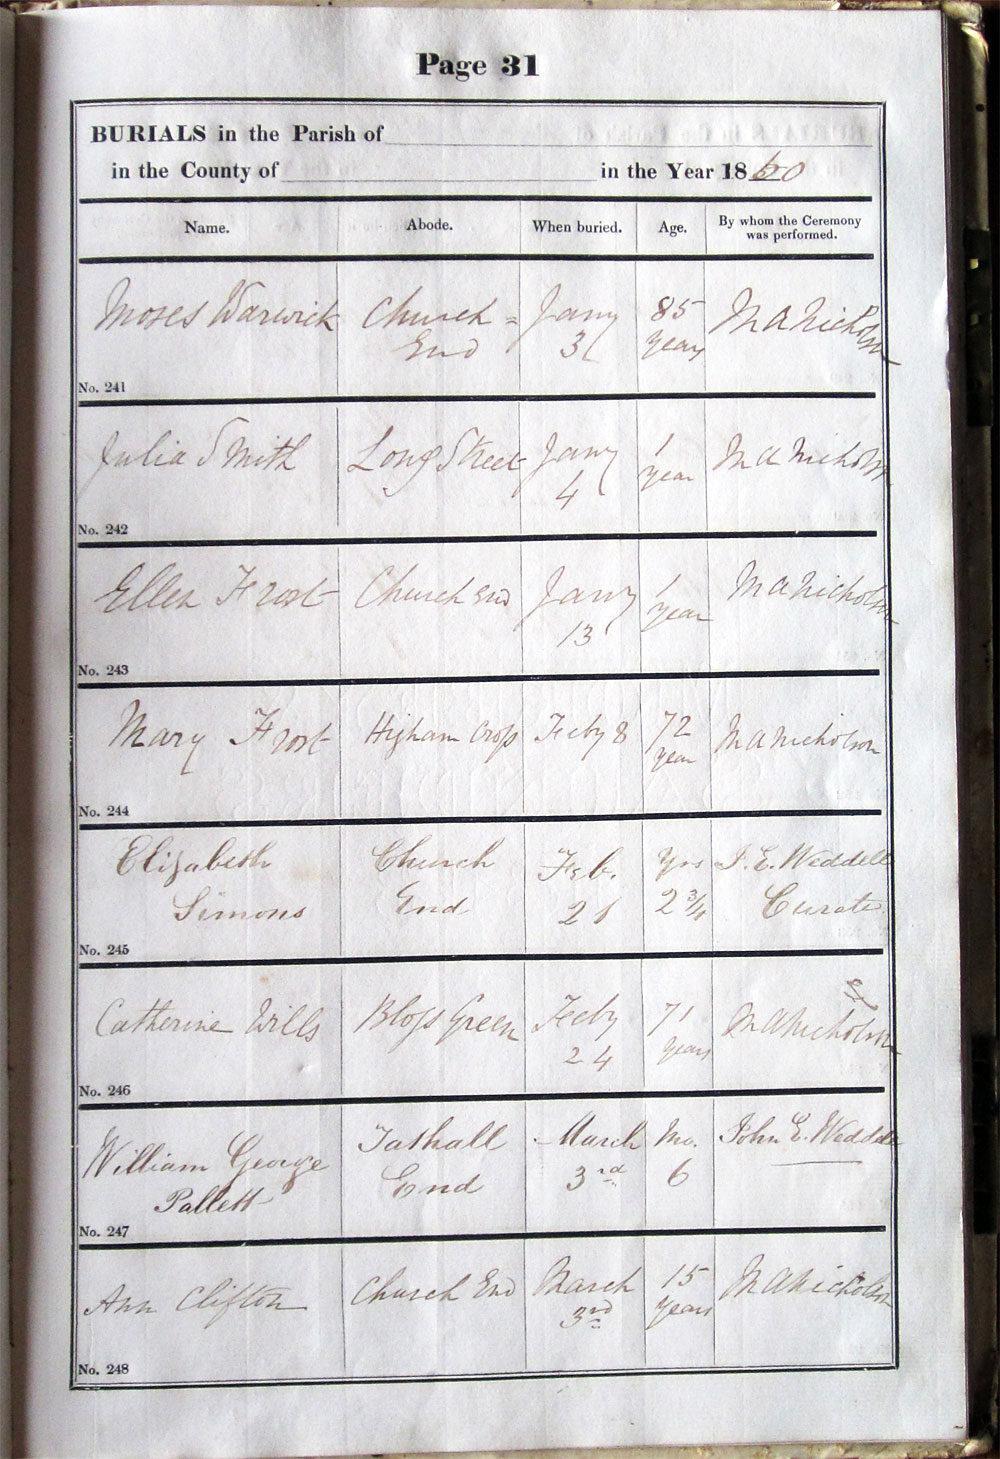 Page 31
BURIALS in the Parish of
in the County of in the Year 1860
Name. Abode. When buried. Age. By whom the Ceremony
was performed.
Moses Warwick Church = Jany 85 M A Nicholson
End 3 years
No. 241
Julia Smith Long Street Jany 1 M A Nicholson
4 year
No. 242
Ellen Frost Church End Jany 1 M A Nicholson
13 year
No. 243
Mary Frost Higham Cross Feby 8 72 M A Nicholson
year
No. 244
Elizabeth Church Feb. Yrs J. E. Weddell
Simons End 21 2 3/4 Curate
No. 245
Catherine Wills Bloss Green Feby 71 M A Nicholson
24 years
No. 246
William George Tathall March Mo. John E. Weddell
Pallett End 3rd 6
No. 247
Ann Clifton Church End March 15 M A Nicholson
3rd years
No. 248